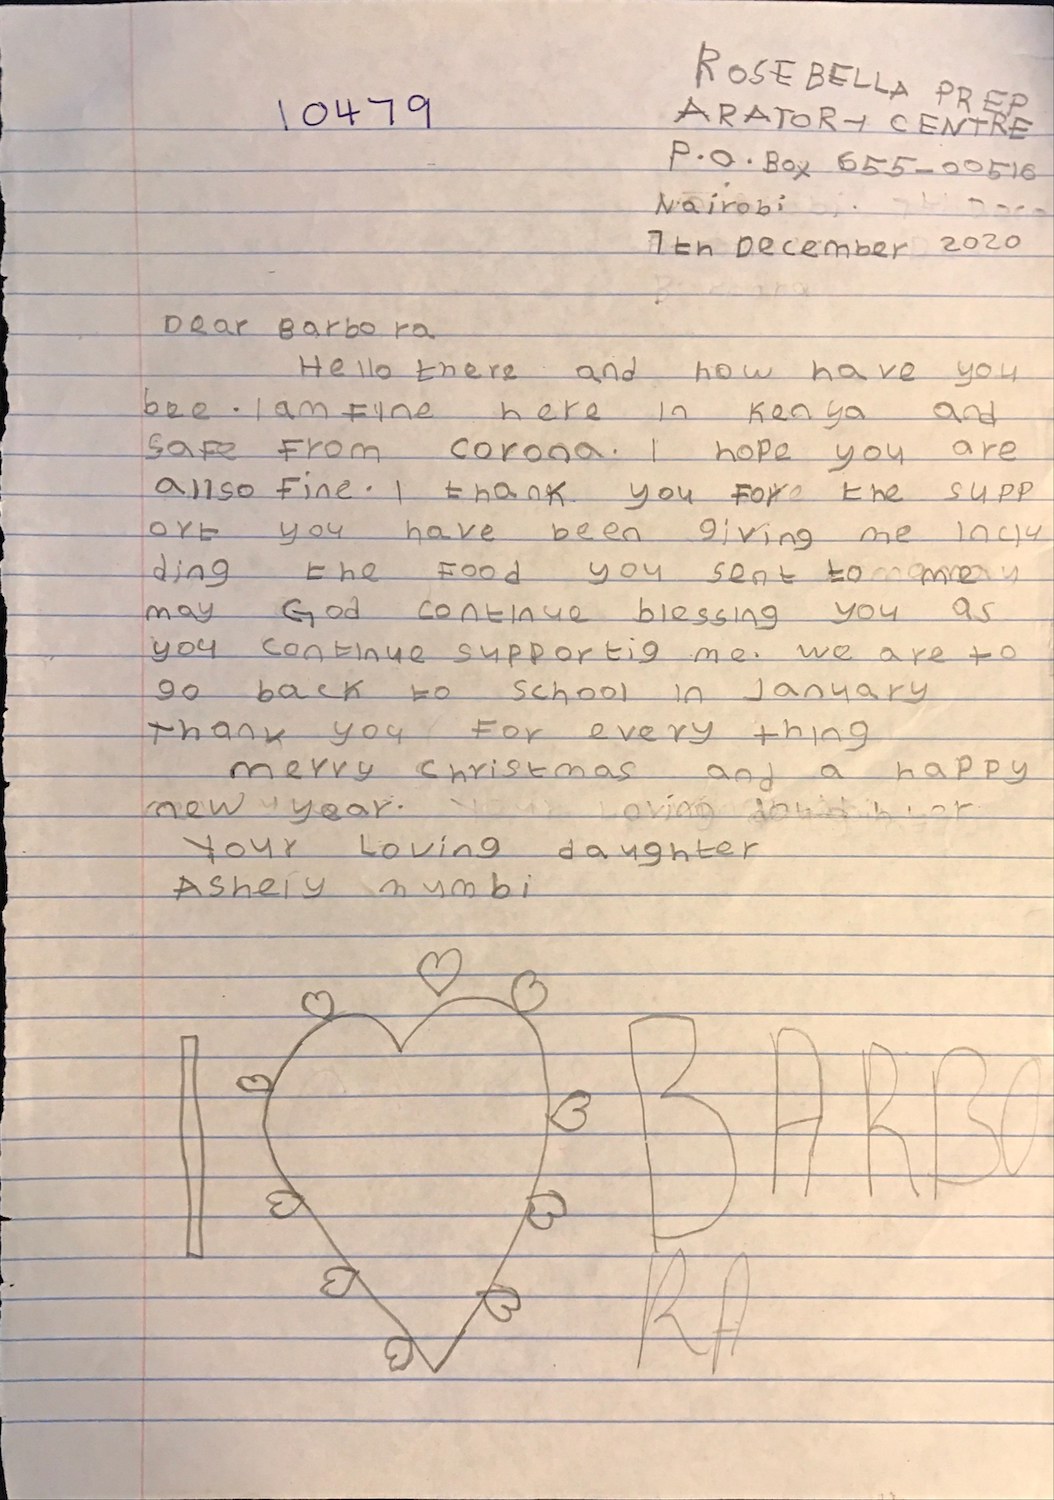 10479
ROSEBELLA PREP
ARATORY CENTRE
P.O. Box 655-00516
Nairobi
7th December 2020
Dear Barbora
Hello there and how have you
bee. I am Fine here in Kenya and
safe From corona. I hope you are
allso Fine. I thank you For the supp
ort you have been giving me inclu
ding the Food you sent to me
may God continue blessing you as
you continue supportig me. we are to
go back to school in January
Thank you For every thing
merry christmas and a happy
new year.
Your Loving daughter
Ashely mumbi
I BARBO
RA